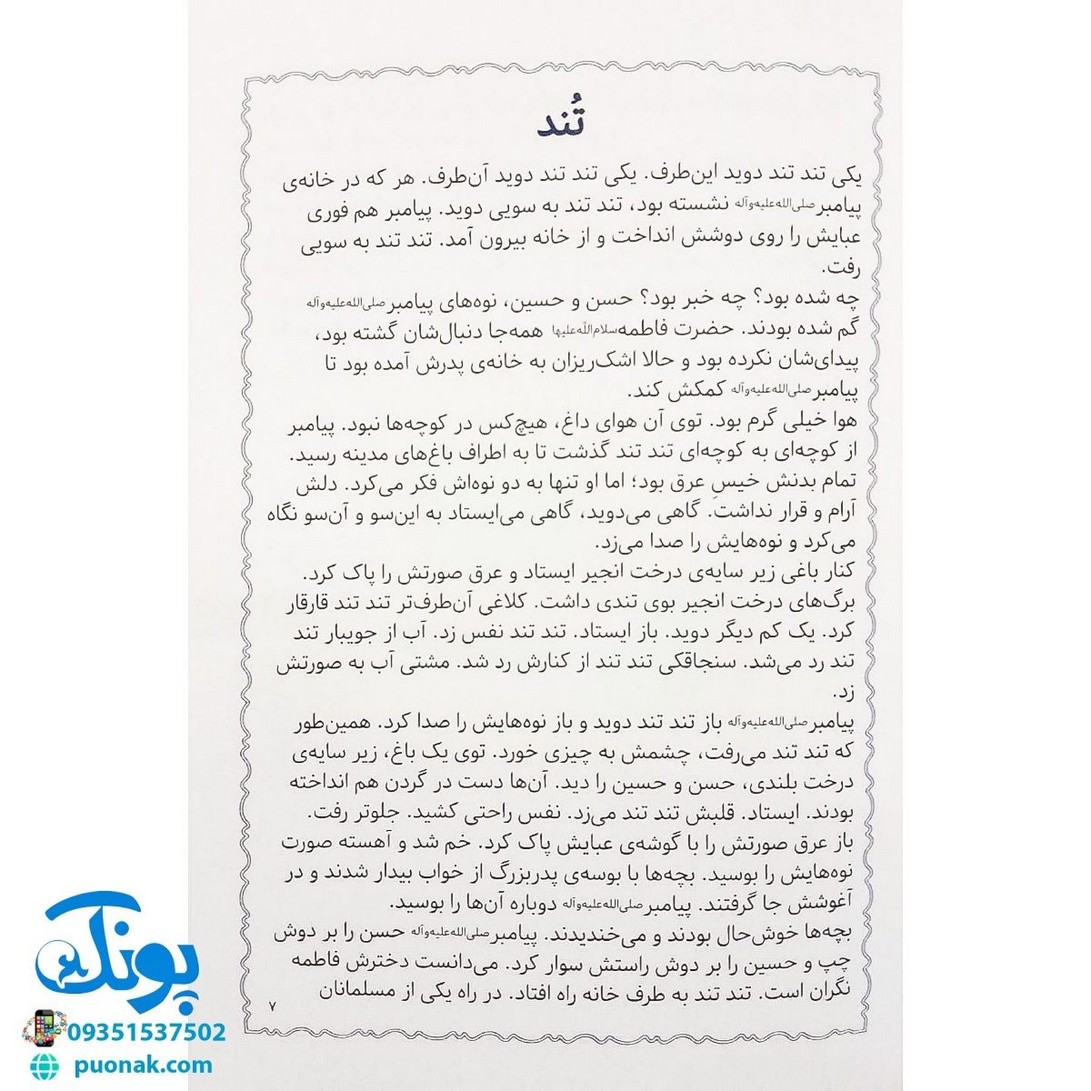 تُند
یکی تند تند دوید این‌طرف. یکی تند تند دوید آن‌طرف. هر که در خانه‌ی
پیامبر صلی‌الله‌علیه‌وآله نشسته بود، تند تند به سویی دوید. پیامبر هم فوری
عبایش را روی دوشش انداخت و از خانه بیرون آمد. تند تند به سویی
رفت.
چه شده بود؟ چه خبر بود؟ حسن و حسین، نوه‌های پیامبر صلی‌الله‌علیه‌وآله
گم شده بودند. حضرت فاطمه سلام‌اللّه‌علیها همه‌جا دنبال‌شان گشته بود،
پیدای‌شان نکرده بود و حالا اشک‌ریزان به خانه‌ی پدرش آمده بود تا
پیامبر صلی‌الله‌علیه‌وآله کمکش کند.
هوا خیلی گرم بود. توی آن هوای داغ، هیچ‌کس در کوچه‌ها نبود. پیامبر
از کوچه‌ای به کوچه‌ای تند تند گذشت تا به اطراف باغ‌های مدینه رسید.
تمام بدنش خیسِ عرق بود؛ اما او تنها به دو نوه‌اش فکر می‌کرد. دلش
آرام و قرار نداشت. گاهی می‌دوید، گاهی می‌ایستاد به این‌سو و آن‌سو نگاه
می‌کرد و نوه‌هایش را صدا می‌زد.
کنار باغی زیر سایه‌ی درخت انجیر ایستاد و عرق صورتش را پاک کرد.
برگ‌های درخت انجیر بوی تندی داشت. کلاغی آن‌طرف‌تر تند تند قارقار
کرد. یک کم دیگر دوید. باز ایستاد. تند تند نفس زد. آب از جویبار تند
تند رد می‌شد. سنجاقکی تند تند از کنارش رد شد. مشتی آب به صورتش
زد.
پیامبر صلی‌الله‌علیه‌وآله باز تند تند دوید و باز نوه‌هایش را صدا کرد. همین‌طور
که تند تند می‌رفت، چشمش به چیزی خورد. توی یک باغ، زیر سایه‌ی
درخت بلندی، حسن و حسین را دید. آن‌ها دست در گردن هم انداخته
بودند. ایستاد. قلبش تند تند می‌زد. نفس راحتی کشید. جلوتر رفت.
باز عرق صورتش را با گوشه‌ی عبایش پاک کرد. خم شد و آهسته صورت
نوه‌هایش را بوسید. بچه‌ها با بوسه‌ی پدربزرگ از خواب بیدار شدند و در
آغوشش جا گرفتند. پیامبر صلی‌الله‌علیه‌وآله دوباره آن‌ها را بوسید.
بچه‌ها خوش‌حال بودند و می‌خندیدند. پیامبر صلی‌الله‌علیه‌وآله حسن را بر دوش
چپ و حسین را بر دوش راستش سوار کرد. می‌دانست دخترش فاطمه
نگران است. تند تند به طرف خانه راه افتاد. در راه یکی از مسلمانان
۷
پونک
09351537502
puonak.com